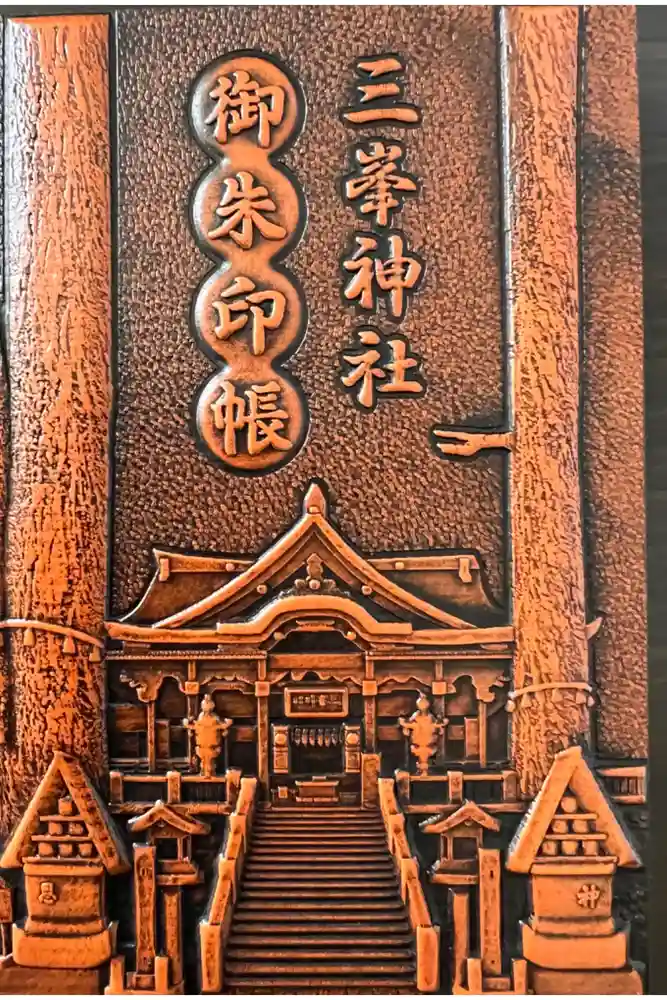 三峯神社
御朱印帳
神